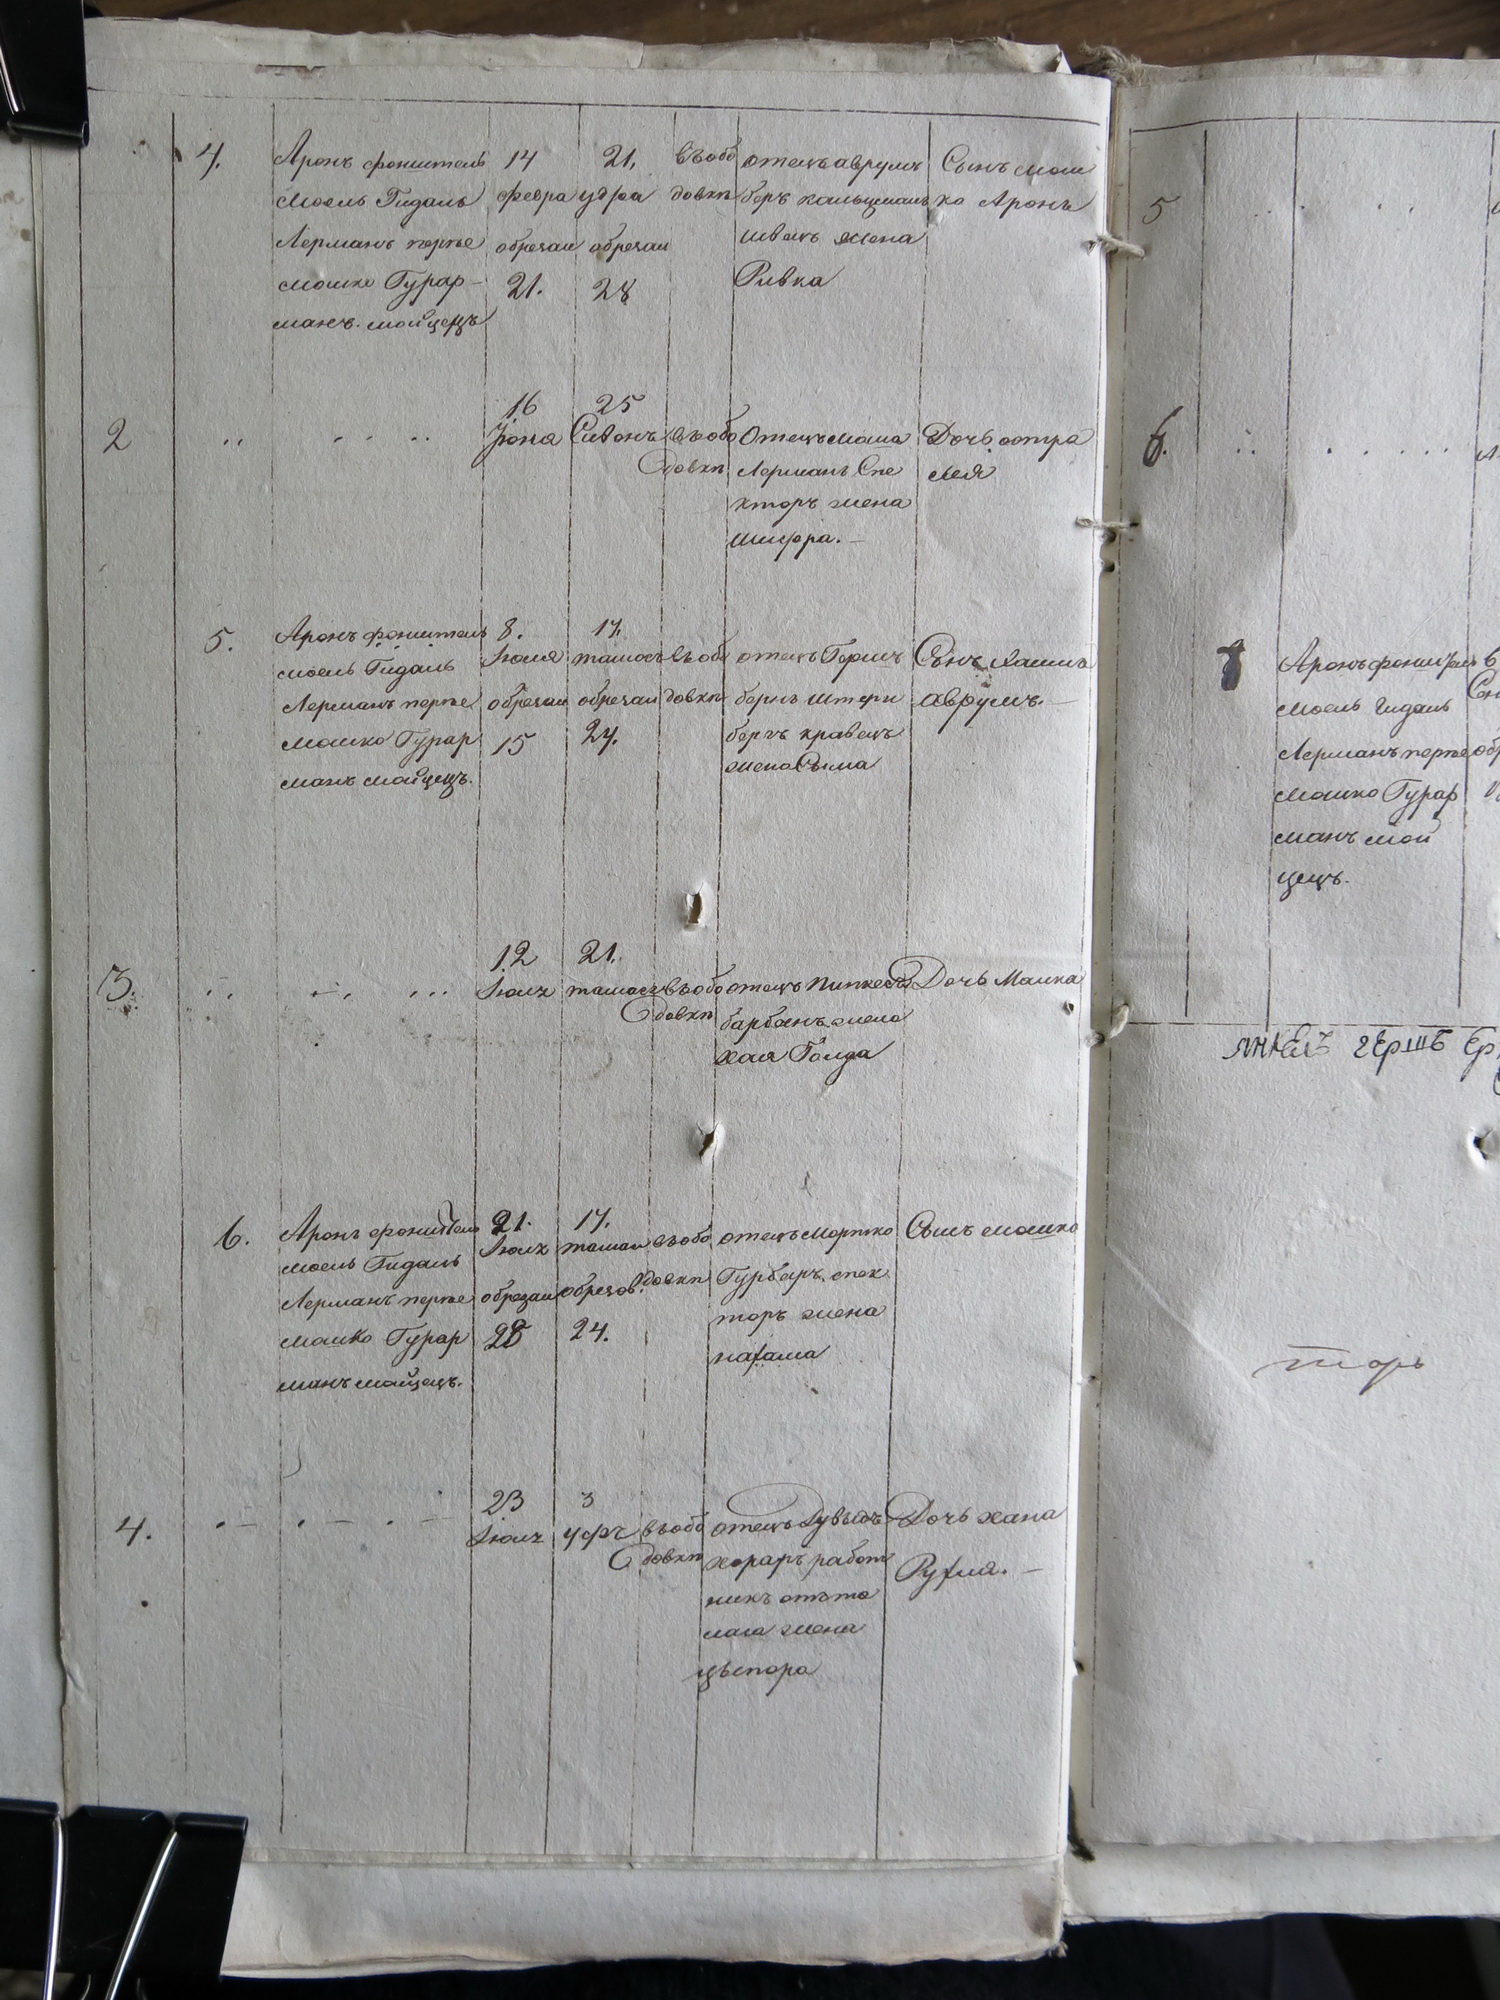 4.
Аронъ фонштель
моель Гидаль
Лерманъ перпе
мошко Гурар-
манъ. мойцецъ
14
февра
обрезан
21.
21.
удра
обрезан
28
въ обо
довкп
отецъ аврумъ
беръ кальцманъ
швецъ жена
Ривка
Сынъ мош
ко Аронъ
2
16
Июна
25
Сивонъ
въ обо
довкп
Отецъ маша
Лерманъ Спе
кторъ жена
шифра.
Дочь остра
лея
5.
Аронъ фонштель
моель Гидаль
Лерманъ перпе
мошко Гурар
манъ мойцецъ.
8.
Июля
обрезан
15
17.
тамосъ
обрезан
24.
въ обо
довкп
отецъ Герш
беръ штерн
бергъ кравецъ
жена Сыма
Сынъ хаимъ
аврумъ.
3.
12
Июль
21.
тамосъ
въ обо
довкп
отецъ пинкесъ
барбанъ жена
хая Голда
Дочь Маика
6.
Аронъ фонштель
моель Гидаль
Лерманъ перпе
мошко Гурар
манъ мойцецъ.
21.
Июль
обрезан
28
17.
тамаи
обрезов.
24.
въ обо
довкп
отецъ мортко
Гурберъ спек
торъ жена
нахама
Сынъ мошко
4.
23
Июль
3
уфъ
въ обо
довкп
отецъ Дувыдъ
хораръ работ
никъ отъто
мага жена
цыпора
Дочь хана
Рухля.
5
6.
7
Аронъ фонштель
моель Гидаль
Лерманъ перпе
мошко Гурар
манъ мой
цецъ.
6
Сен
обр
ЯНКЕЛЪ ГЕРШЪ ЕР
торь